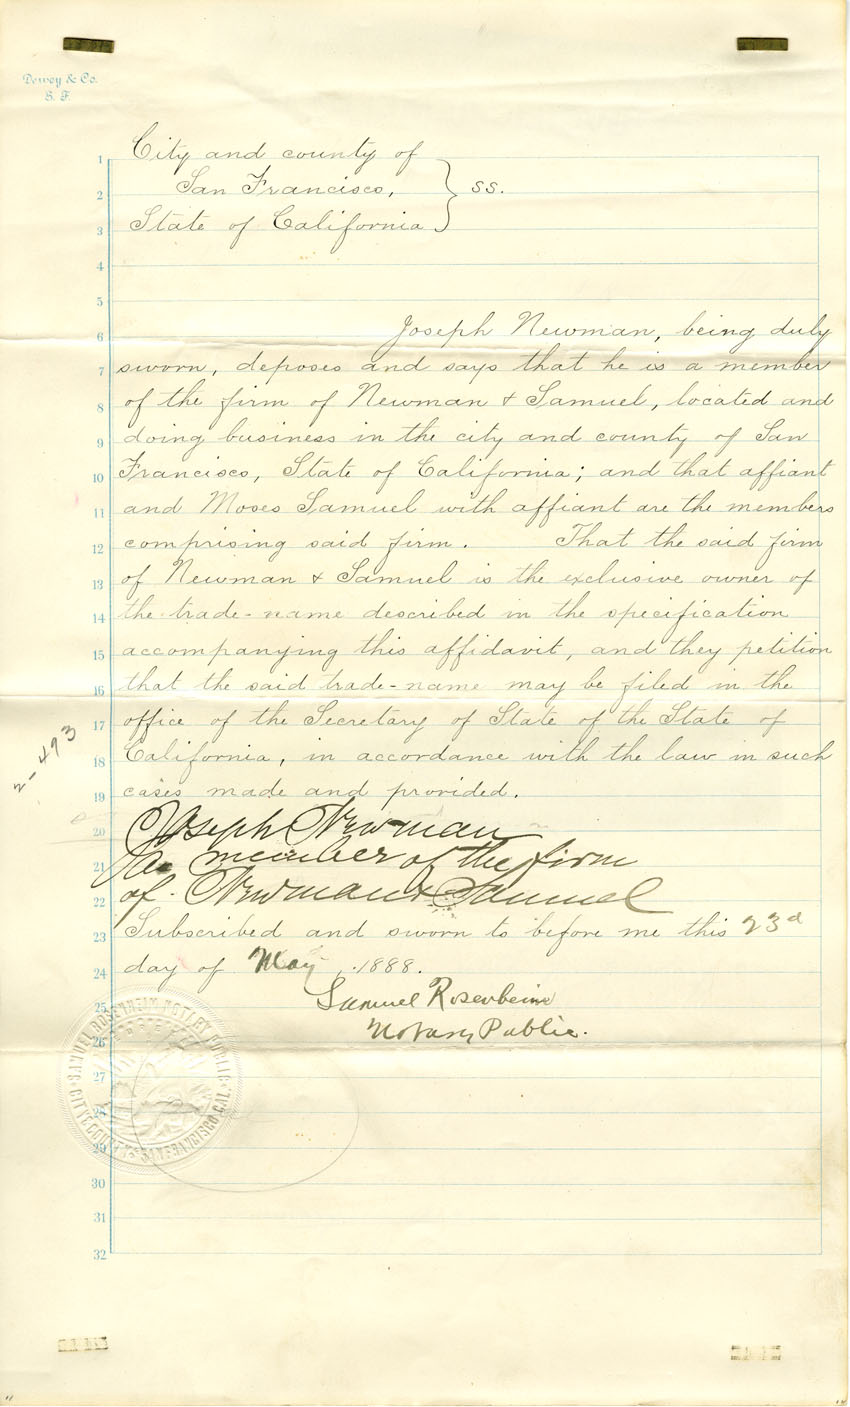 Dewey & Co.
S. F.
1 City and county of
2 San Francisco, } ss.
3 State of California
4
5
6 Joseph Newman, being duly
7 sworn, deposes and says that he is a member
8 of the firm of Newman & Samuel, located and
9 doing business in the city and county of San
10 Francisco, State of California; and that affiant
11 and Moses Samuel with affiant are the members
12 comprising said firm. That the said firm
13 of Newman & Samuel is the exclusive owner of
14 the trade-name described in the specification
15 accompanying this affidavit, and they petition
16 that the said trade-name may be filed in the
17 office of the Secretary of State of the State of
18 California, in accordance with the law in such
19 cases made and provided.
2-493
20 Joseph Newman
21 a member of the firm
22 of Newman & Samuel
23 Subscribed and sworn to before me this 23d
24 day of May, 1888.
25 Samuel Rosenheim
26 Notary Public.
27
28
29
30
31
32
SAMUEL ROSENHEIM, NOTARY PUBLIC
CITY & COUNTY OF SAN FRANCISCO CAL.